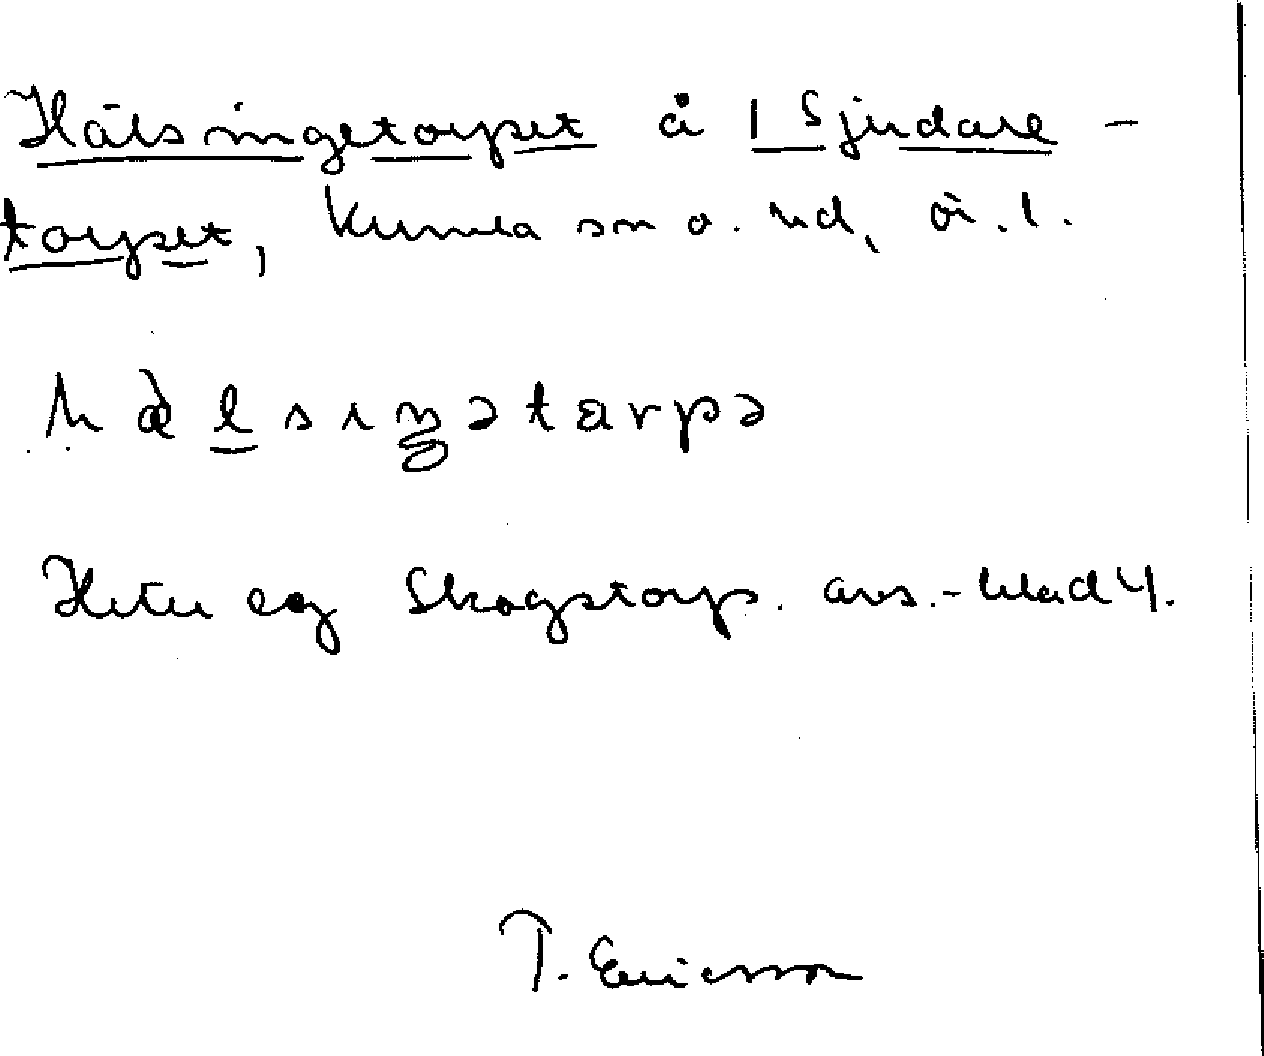 Hälsingetorpet å 1 Sjudare-
torpet, Kumla sn o. hd, ö. l.
hàlsıŋətarpə
Heter eg Skogstorp. avs.-blad 4.
T. Ericsson